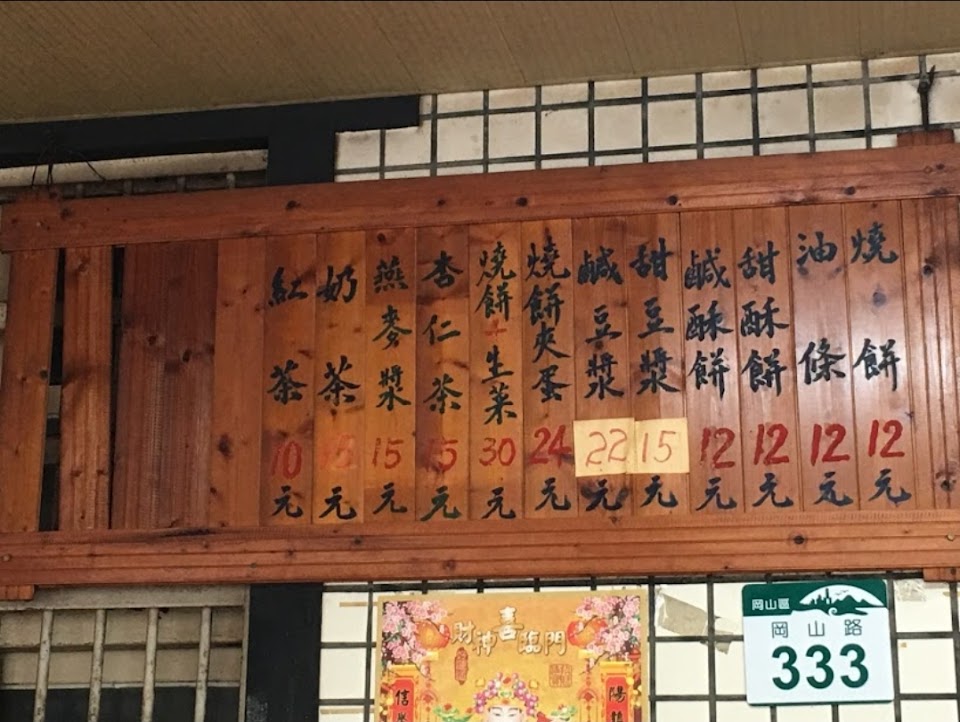 燒餅12元
油條12元
甜酥餅12元
鹹酥餅12元
甜豆漿15元
鹹豆漿22元
燒餅夾蛋24元
燒餅+生菜30元
杏仁茶15元
燕麥漿15元
奶茶15元
紅茶10元
財神喜臨門
岡山區
岡山路
333